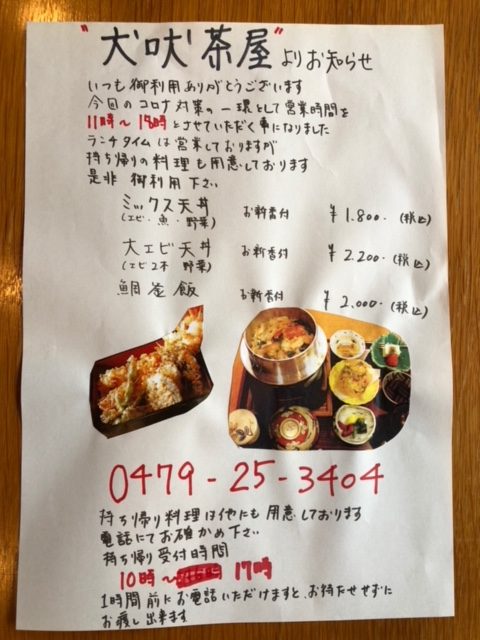 "犬吠茶屋"よりお知らせ
いつも御利用ありがとうございます
今回のコロナ対策の一環として営業時間を
11時〜18時とさせていただく事になりました
ランチタイムは営業しておりますが
持ち帰りの料理も用意しております
是非 御利用下さい
ミックス天丼 お新香付 ¥1.800. (税込)
(エビ・魚・野菜)
大エビ天丼 お新香付 ¥2.200. (税込)
(エビ2本 野菜)
鯛釜飯 お新香付 ¥2,000. (税込)
0479-25-3404
持ち帰り料理は他にも用意しております
電話にてお確かめ下さい
持ち帰り受付時間
10時〜 17時
1時間前にお電話いただけますと、お待たせせずに
お渡し出来ます